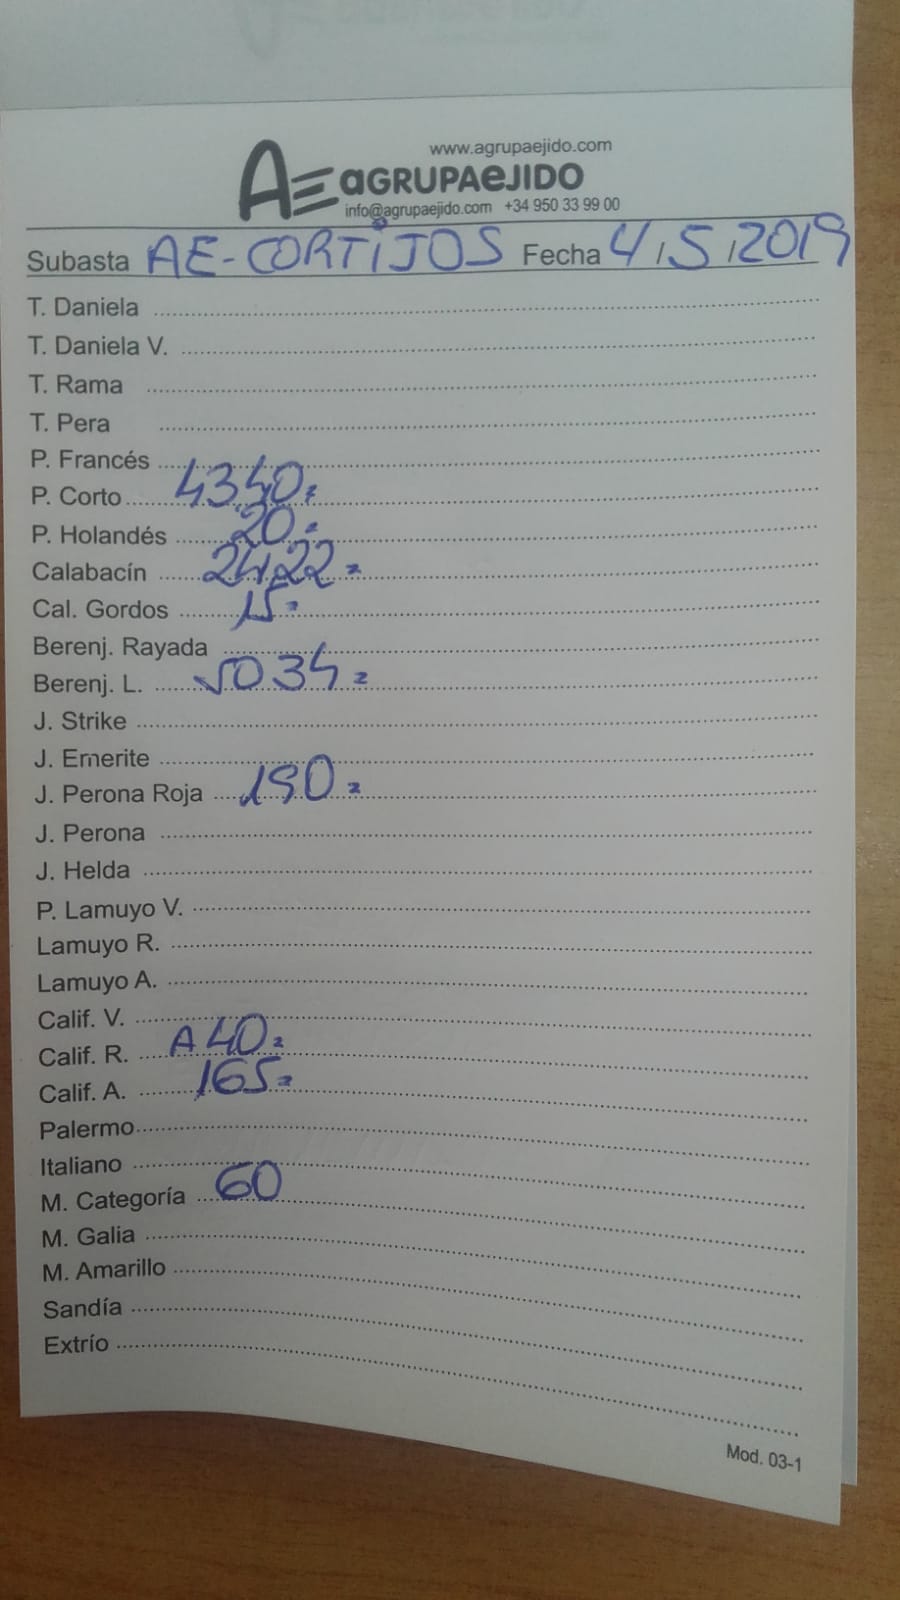 www.agrupaejido.com
AE aGRUPAeJIDO
info@agrupaejido.com +34 950 33 99 00
Subasta AE-CORTIJOS Fecha 4/5/2019
T. Daniela
T. Daniela V.
T. Rama
T. Pera
P. Francés
P. Corto 4340=
P. Holandés 20=
Calabacín 24,22=
Cal. Gordos 15=
Berenj. Rayada
Berenj. L. 5034=
J. Strike
J. Emerite
J. Perona Roja 190=
J. Perona
J. Helda
P. Lamuyo V.
Lamuyo R.
Lamuyo A.
Calif. V.
Calif. R. A 40=
Calif. A. 165=
Palermo
Italiano
M. Categoría 60
M. Galia
M. Amarillo
Sandía
Extrío
Mod. 03-1